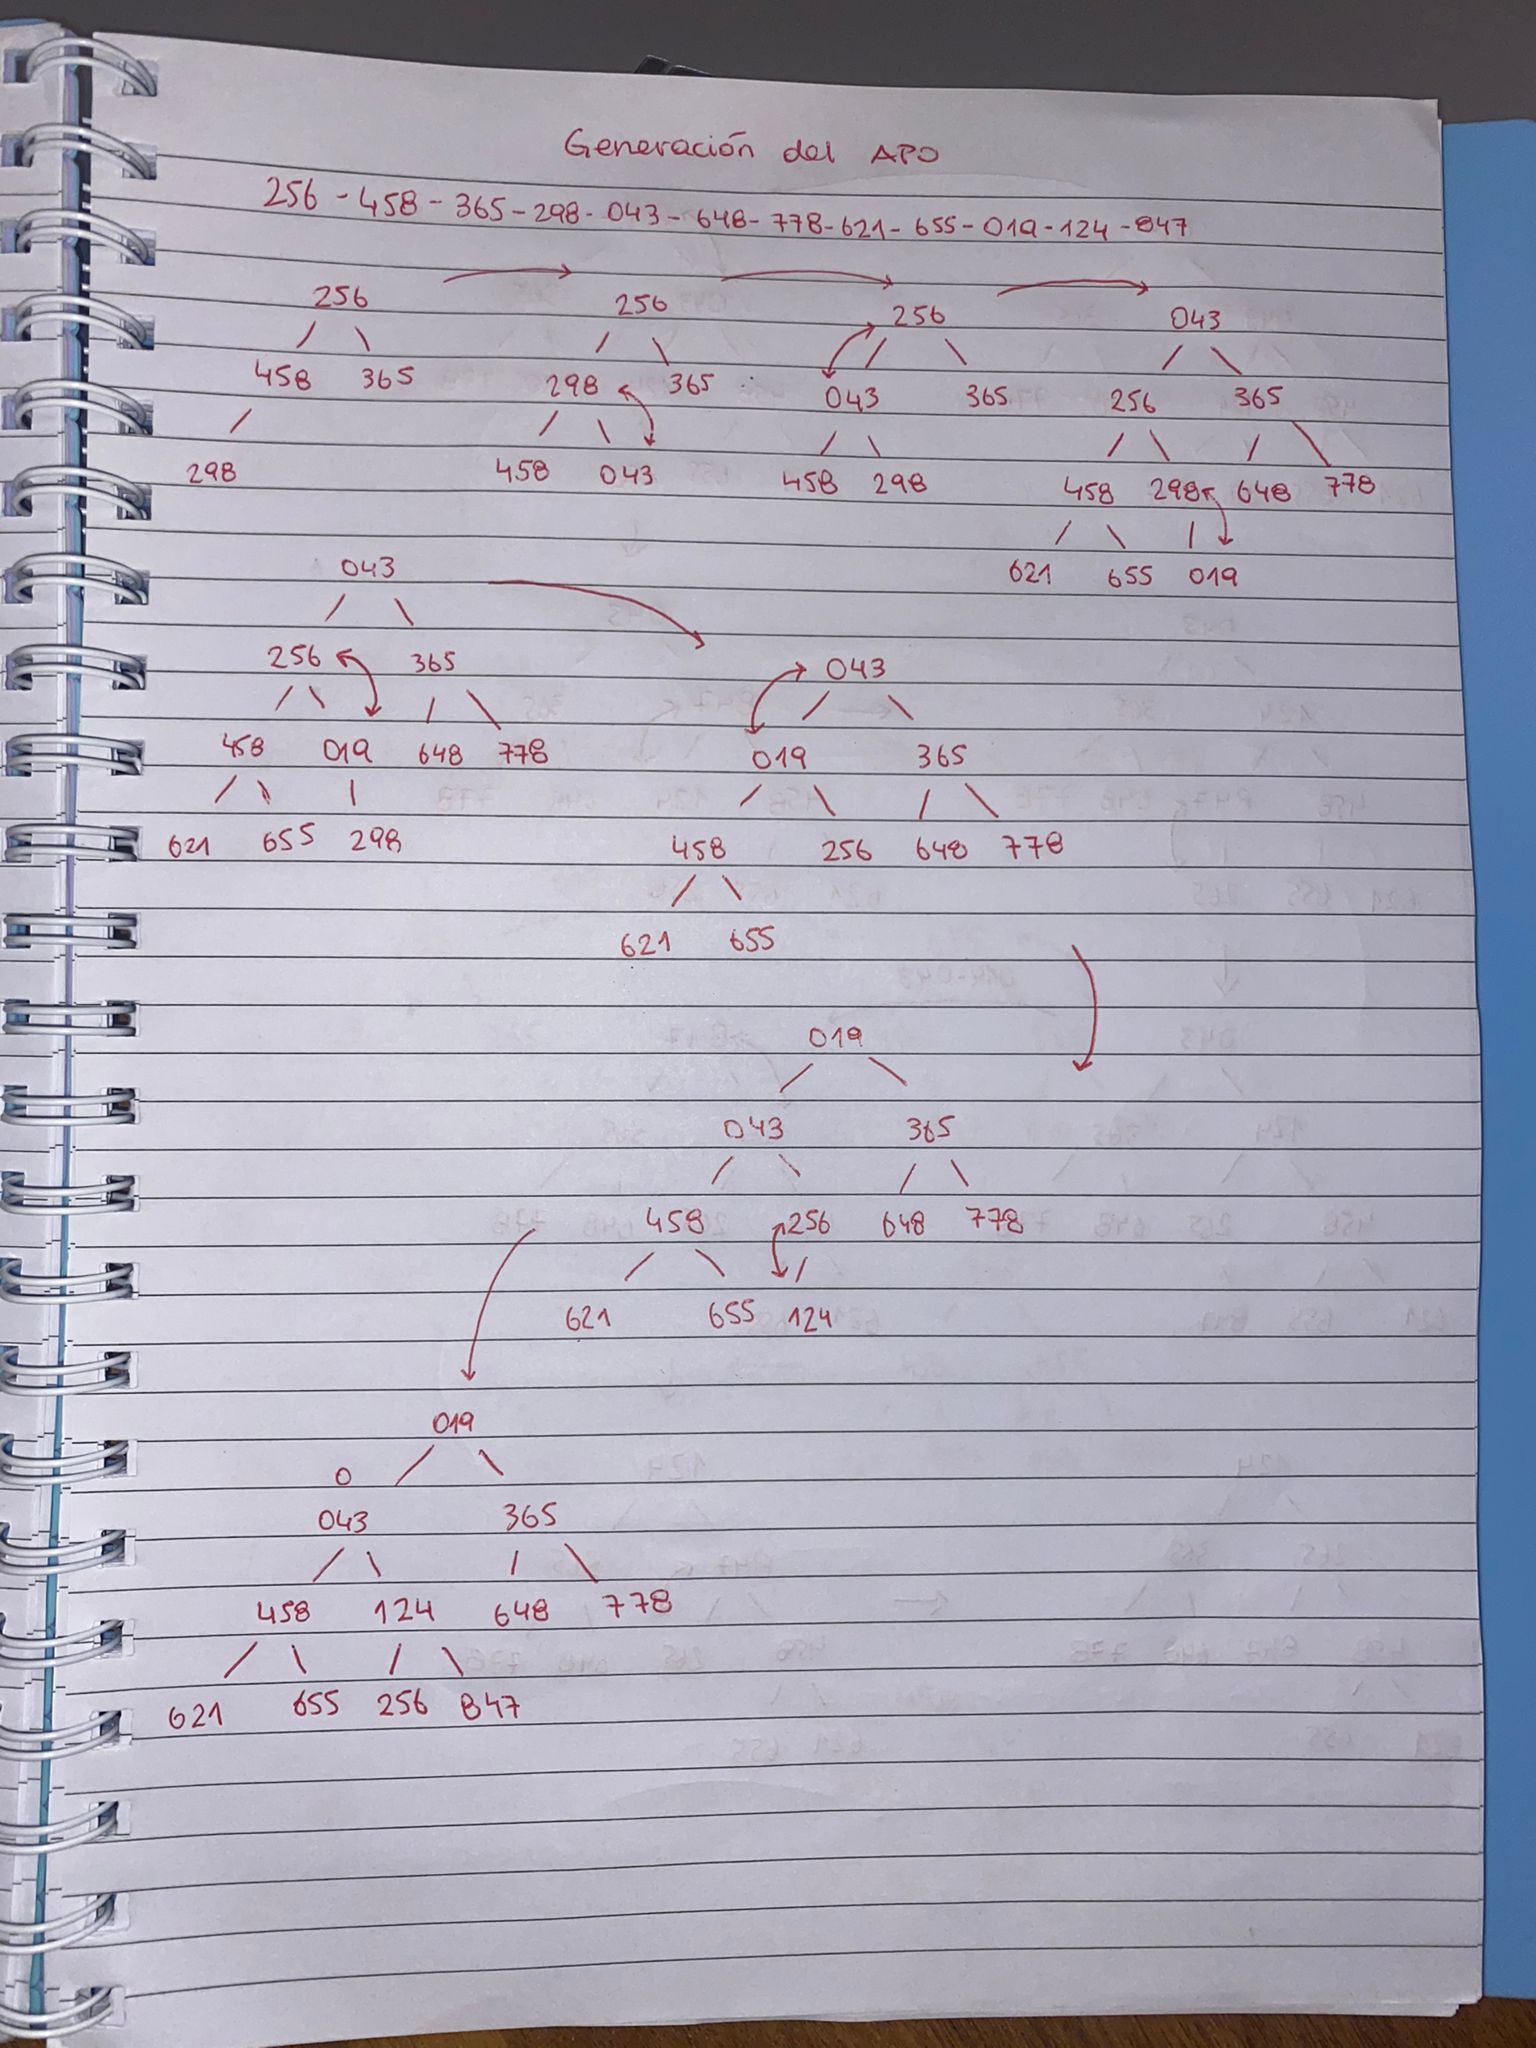 Generación del APO
256 - 458 - 365 - 298 - 043 - 648 - 778 - 621 - 655 - 019 - 124 - 847
256 256 256 043
458 365 298 365 043 365 256 365
298 458 043 458 298 458 298 648 778
621 655 019
043
256 365 043
458 019 648 778 019 365
621 655 298 458 256 648 778
621 655
019
043 365
458 256 648 778
621 655 124
019
0
043 365
458 124 648 778
621 655 256 847